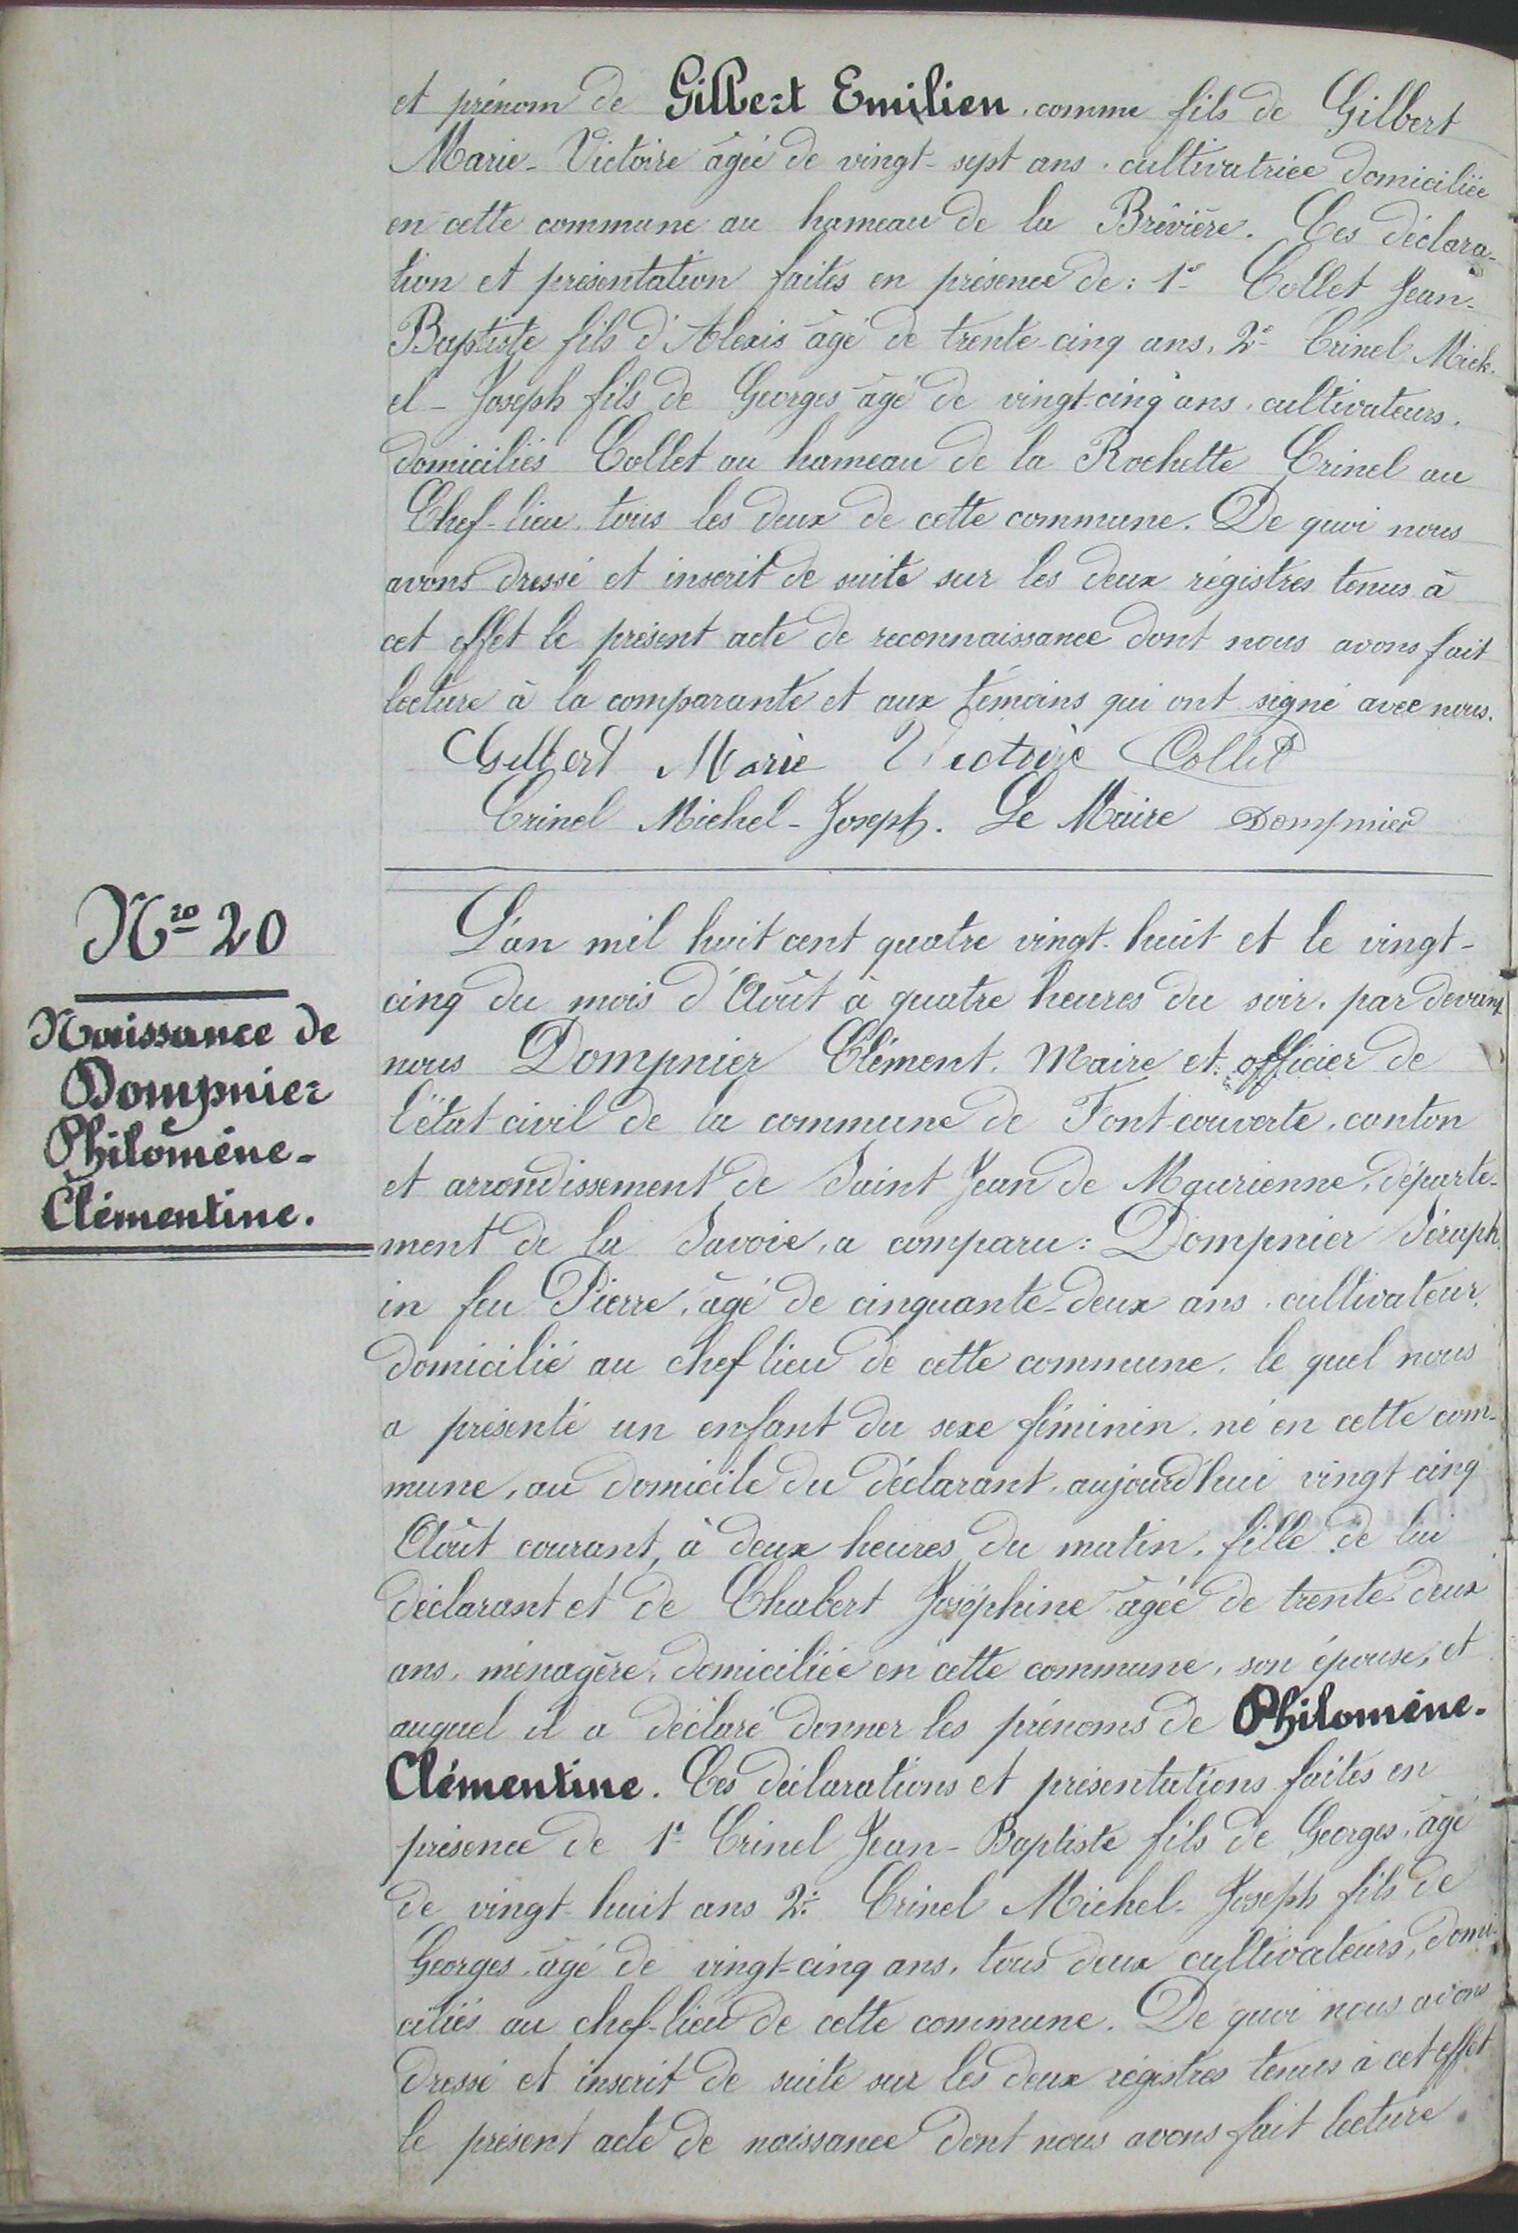 et prénom de Gilbert Emilien, comme fils de Gilbert
Marie-Victoire âgée de vingt-sept ans, cultivatrice domiciliée
en cette commune au hameau de la Brévière. Ces déclara-
tion et présentation faites en présence de : 1° Collet Jean-
Baptiste fils d'Alexis âgé de trente-cinq ans, 2° Crinel Mich-
el-Joseph fils de Georges âgé de vingt-cinq ans, cultivateurs,
domiciliés Collet au hameau de la Rochette Crinel au
Chef-lieu tous les deux de cette commune. De quoi nous
avons dressé et inscrit de suite sur les deux régistres tenus à
cet effet le présent acte de reconnaissance dont nous avons fait
lecture à la comparante et aux témoins qui ont signé avec nous.
Gilbert Marie Victoire Collet
Crinel Michel-Joseph. Le Maire Dompnier
Nro 20
Naissance de
Dompnier
Philoméne-
Clémentine.
L'an mil huit cent quatre vingt-huit et le vingt-
cinq du mois d'Août à quatre heures du soir, par devant
nous Dompnier Clément, Maire et officier de
l'état civil de la commune de Font-couverte, canton
et arrondissement de Saint Jean de Maurienne, départe-
ment de la Savoie, a comparu : Dompnier Séraph-
in feu Pierre, âgé de cinquante-deux ans, cultivateur,
domicilié au chef lieu de cette commune, le quel nous
a présenté un enfant du sexe féminin, né en cette com-
mune, au domicile du déclarant, aujourd'hui vingt cinq
Août courant, à deux heures du matin, fille de lui
déclarant et de Chabert Joséphine âgée de trente-deux
ans, ménagère, domiciliée en cette commune, son épouse, et
auquel il a déclaré donner les prénoms de Philoméne-
Clémentine. Ces déclarations et présentations faites en
présence de 1° Crinel Jean-Baptiste fils de Georges, âgé
de vingt-huit ans 2° Crinel Michel-Joseph fils de
Georges, âgé de vingt-cinq ans, tous deux cultivateurs, domi-
ciliés au chef-lieu de cette commune. De quoi nous avons
dressé et inscrit de suite sur les deux régistres tenus à cet effet
le présent acte de naissance dont nous avons fait lecture